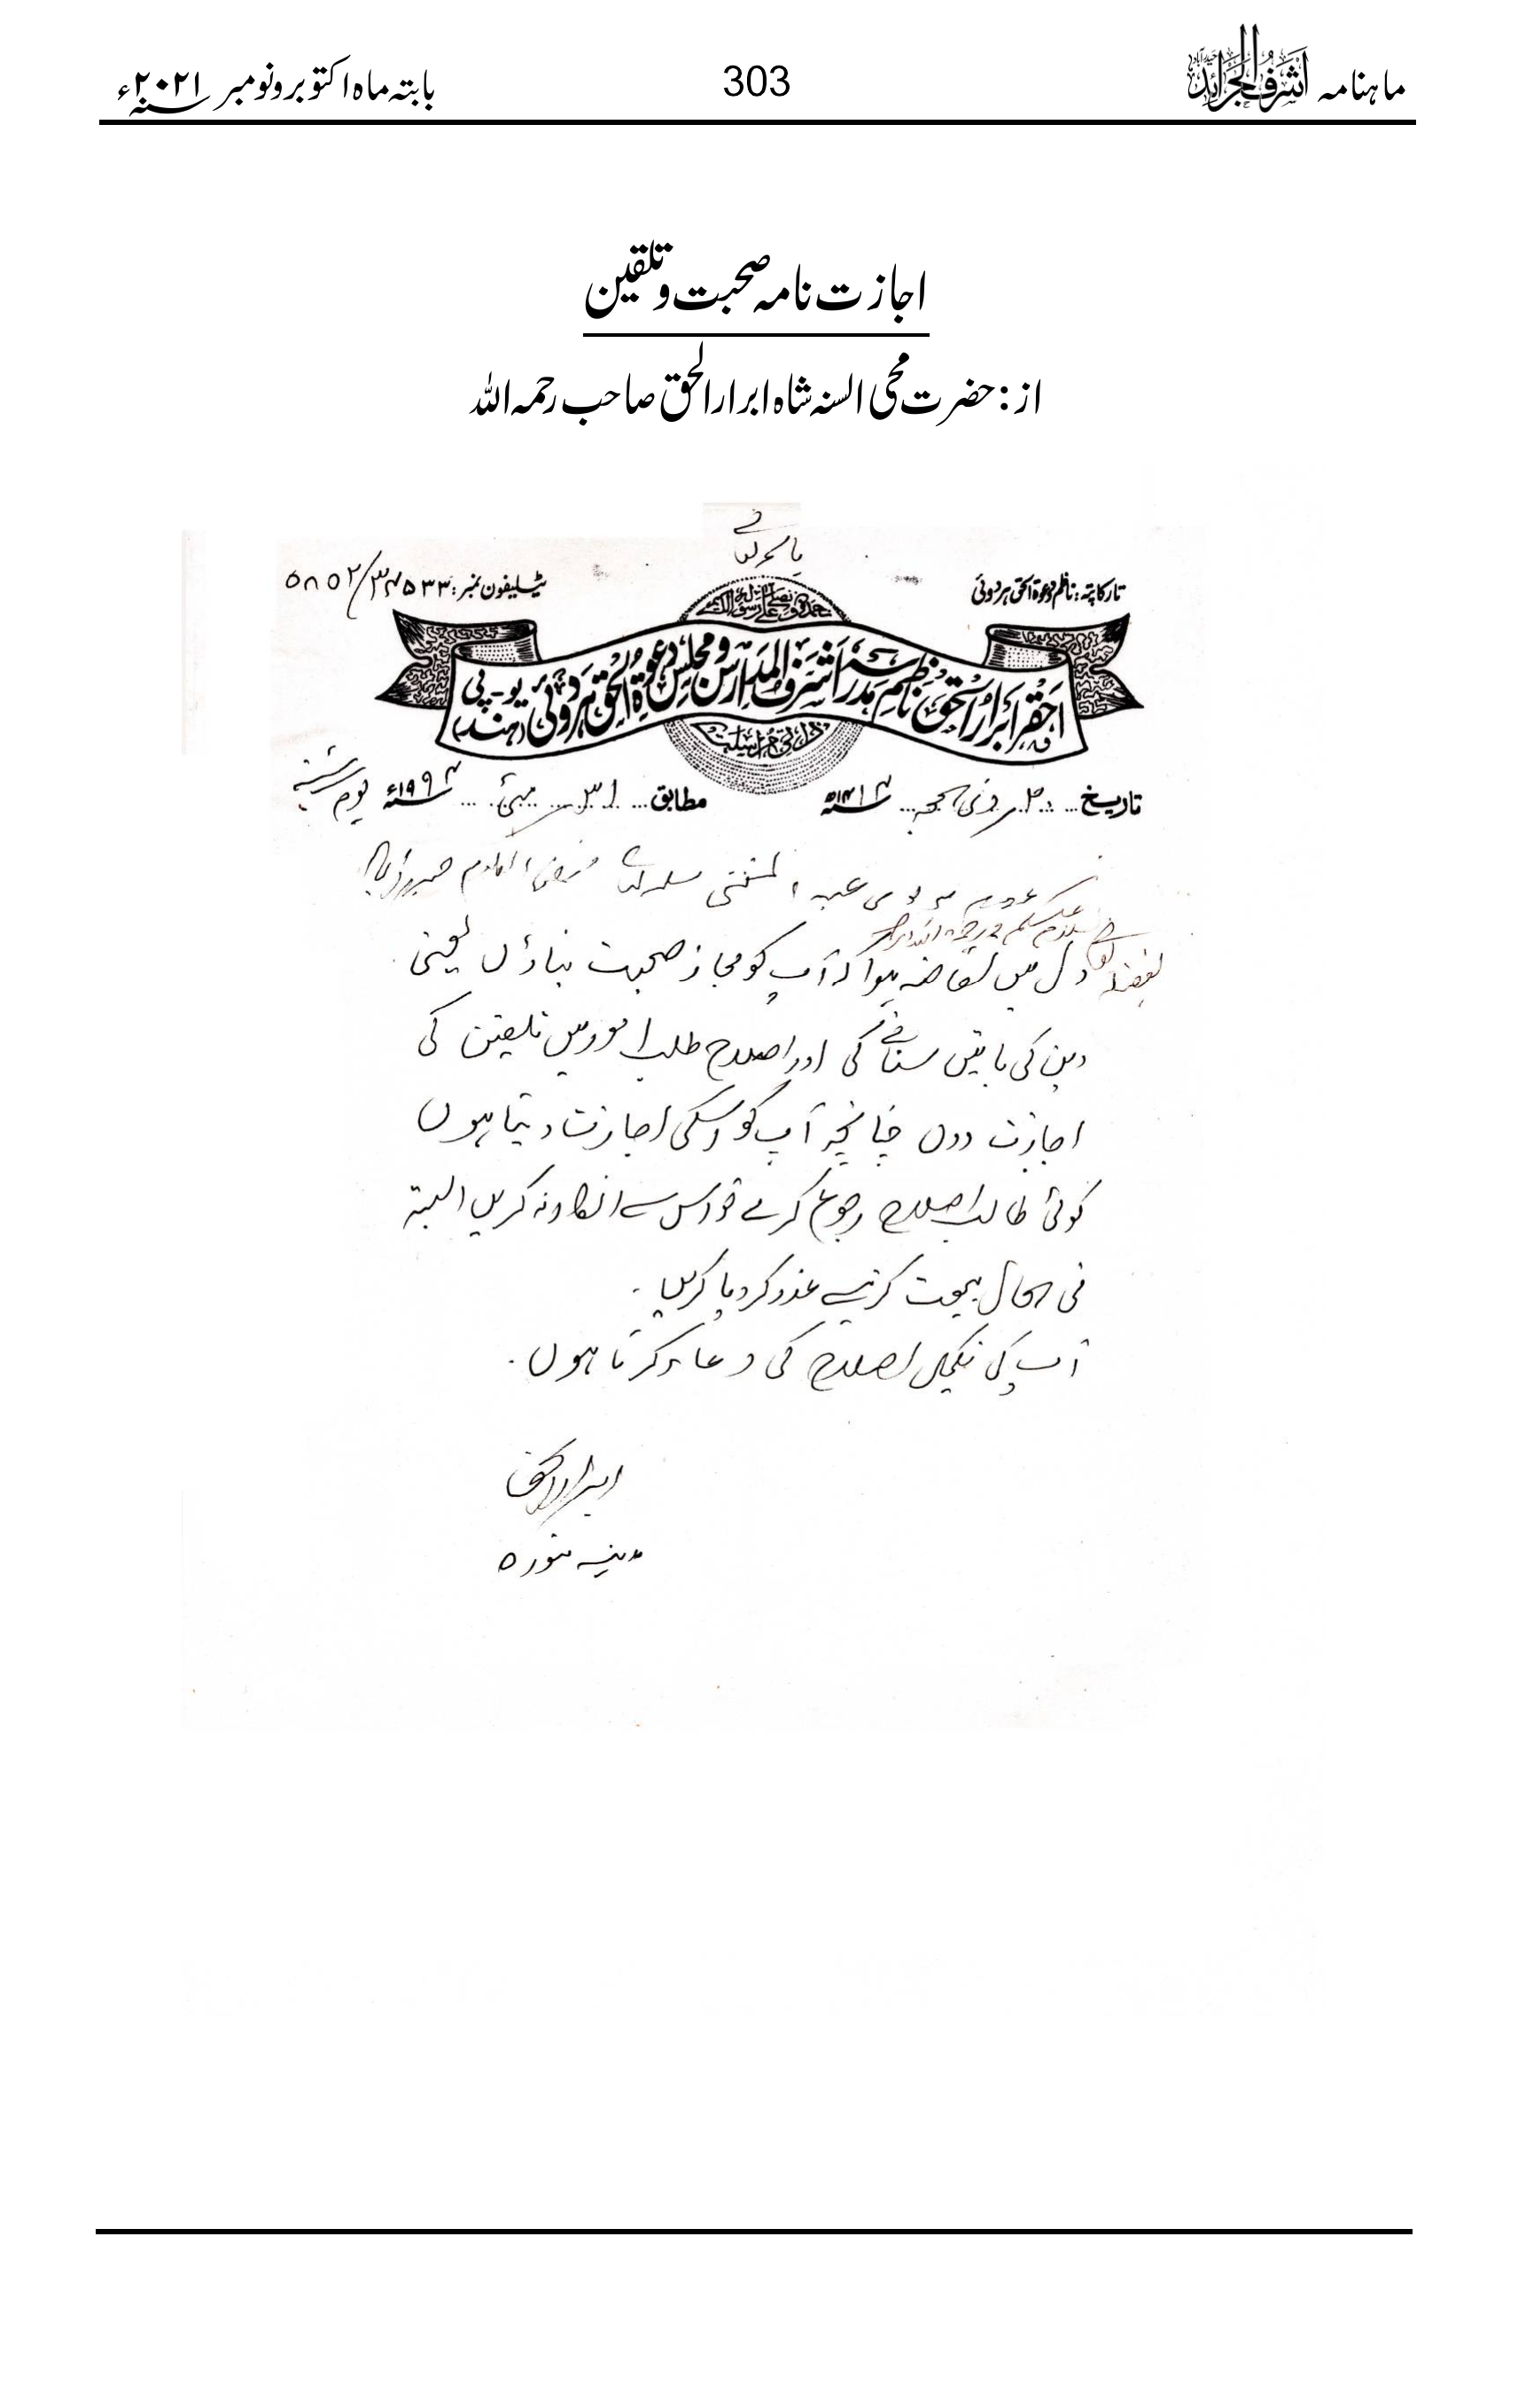 ماہنامہ اشرف الجرائد حیدرآباد
303
بابتہ ماہ اکتوبر و نومبر ۲۰۲۱ء
اجازت نامہ صحبت و تلقین
از: حضرت محی السنہ شاہ ابرارالحق صاحب رحمہ اللہ
تار کا پتہ: ناظم دعوۃ الحق ہردوئی
ٹیلیفون نمبر:
نحمدہ و نصلی علی رسولہ الکریم
احقر ابرار الحق ناظم مدرسہ اشرف المدارس و مجلس دعوۃ الحق ہردوئی یو-پی (ہند)
ذاتی مراسلت
تاریخ ذی الحجہ مطابق مئی
السلام علیکم ورحمۃ اللہ وبرکاتہ
دل میں تقاضہ ہوا کہ آپ کو مجاز صحبت بناؤں یعنی
دین کی باتیں سنانے کی اور اصلاح طلب امور میں تلقین کی
اجازت دوں چنانچہ آپ کو اسکی اجازت دیتا ہوں
کوئی طالب اصلاح رجوع کرے تو اس سے انکار نہ کریں البتہ
فی الحال بیعت کرنیسے عذر کر دیا کریں۔
آپ کی تکمیل اصلاح کی دعاء کرتا ہوں۔
ابرار الحق
مدینہ منورہ